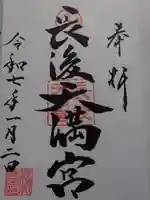 奉拝
長後天満宮
令和七年一月二日